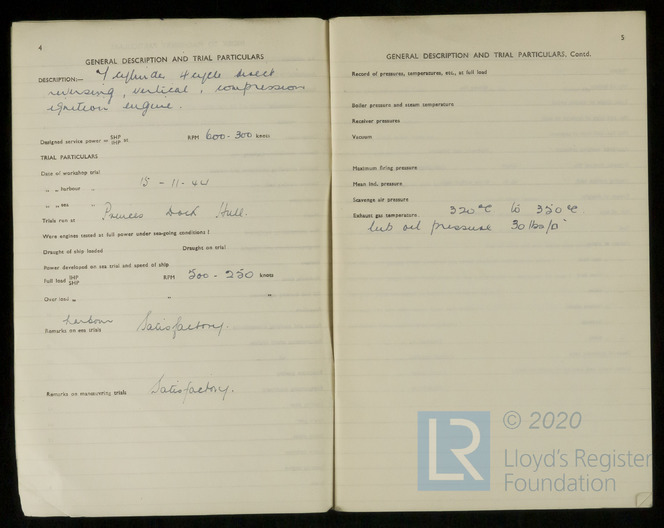 4
GENERAL DESCRIPTION AND TRIAL PARTICULARS
DESCRIPTION:— 7 cylinder 4 cycle direct
reversing, vertical, compression
ignition engine.
Designed service power = SHP IHP at RPM 600-300 knots
TRIAL PARTICULARS
Date of workshop trial
„ „ harbour „ 15-11-44
„ „ sea „
Trials run at Princes Dock Hull.
Were engines tested at full power under sea-going conditions?
Draught of ship loaded Draught on trial
Power developed on sea trial and speed of ship
Full load IHP SHP RPM 500-250 knots
Over load „ „ „
harbour
Remarks on sea trials Satisfactory.
Remarks on manœuvring trials Satisfactory.
5
GENERAL DESCRIPTION AND TRIAL PARTICULARS, Contd.
Record of pressures, temperatures, etc., at full load
Boiler pressure and steam temperature
Receiver pressures
Vacuum
Maximum firing pressure
Mean ind. pressure
Scavenge air pressure
Exhaust gas temperature. 320°C to 350°C
lub oil pressure 30 lbs/□"
LR
© 2020
Lloyd's Register
Foundation